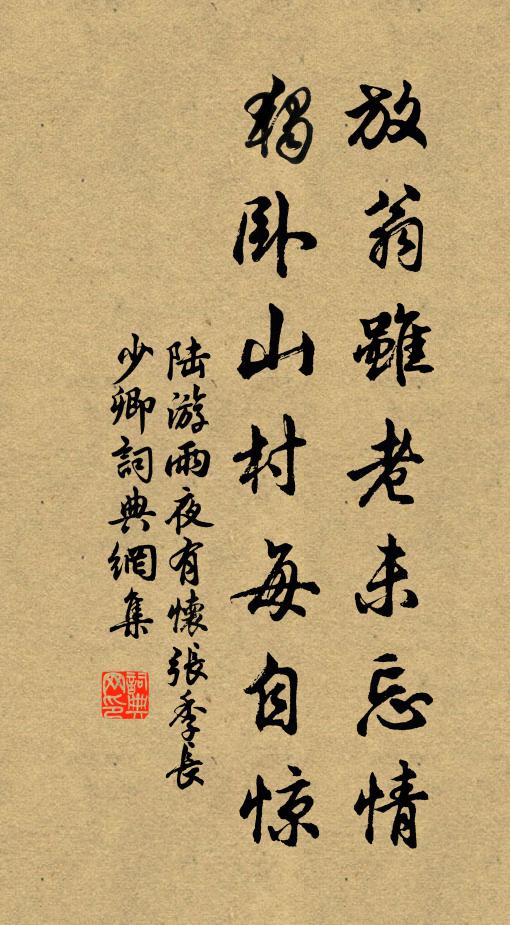 放翁雖老未忘情
獨卧山村每自惊
陆游雨夜有懷張季長
少卿詞典網集
詞典网印